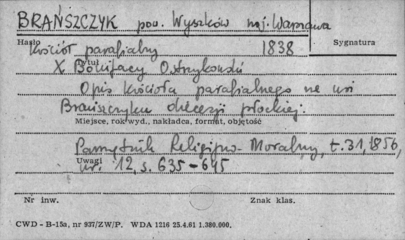 BRAŃSZCZYK pow. Wyszków woj. Warszawa
Hasło
Kościół parafialny 1838 Sygnatura
Tytuł
X Bonifacy Ostrzykowski
Opis kościoła parafialnego we wsi
Brańszczyku diecezji płockiej.
Miejsce, rok wyd., nakładca, format, objętość
Pamiętnik Religijno-Moralny, t.31, 1856,
Uwagi
nr. 12, s. 635-645
Nr inw. Znak klas.
CWD - B-15a, nr 937/ZW/P. WDA 1216 25.4.61 1.380.000.